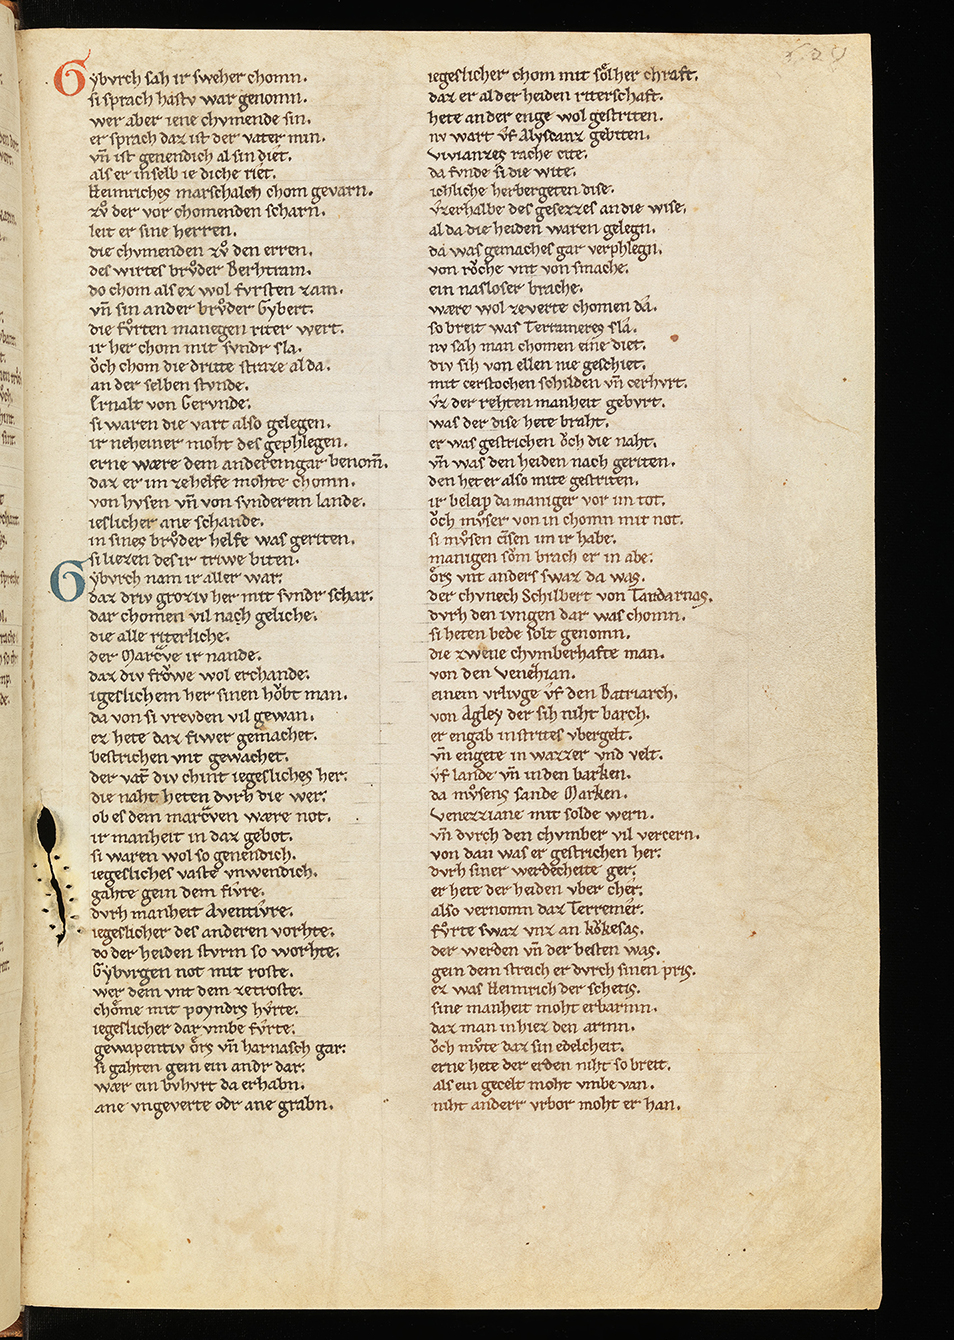 Gẏbvrch sah ir sweher chomn.
si sprach hastv war genomn.
wer aber iene chvmende sin.
er sprach daz ist der vater min.
vn̄ ist genendich al sin diet.
als er in selb ie diche riet.
Heimriches marschalch chom gevarn.
zvͦ der vor chomenden scharn.
leit er sine herren.
die chvmenden zvͦ den erren.
des wirtes brvͦder Berhtram.
do chom als ez wol fvrsten zam.
vn̄ sin ander brvͦder Gybert.
die fvͦrten manegen riter wert.
ir her chom mit svndr sla.
oͮch chom die dritte straze al da.
an der selben stvnde.
Ernalt von Gervnde.
si waren die vart also gelegen.
ir neheiner moht des gephlegen.
erne wære dem anderemgar benom̄.
daz er im zehelfe mohte chomn.
von hvsen vn̄ von svnderem lande.
ieslicher ane schande.
in sines brvͦder helfe was geriten.
si liezen des ir triwe biten.
Gẏbvrch nam ir aller war.
daz driv groziv her mit svndr schar.
dar chomen vil nach geliche.
die alle riterliche.
der Marcṽe ir nande.
daz div froͮwe wol erchande.
igeslichem her sinen hoͮbt man.
da von si vrevden vil gewan.
ez hete daz fiwer gemachet.
bestrichen vnt gewachet.
der vat̄ div chint iegesliches her.
die naht heten dvrh die wer.
ob es dem marcven wære not.
ir manheit in daz gebot.
si waren wol so genendich.
iegesliches vaste vnwendich.
gahte gein dem fivre.
dvrh manheit Aventivre.
iegeslicher des anderen vorhte.
do der heiden stvrm so worhte.
Gẏbvrgen not mit roste.
wer dem vnt dem zetroste.
choͤme mit poyndrs hvrte.
iegeslicher dar vmbe fvrte.
gewapentiv oͤrs vn̄ harnasch gar.
si gahten gein ein andr dar.
wær ein bvhvrt da erhabn.
ane vngeverte odr ane grabn.
iegeslicher chom mit soͤlher chraft.
daz er al der heiden riterschaft.
hete an der enge wol gestriten.
nv wart vf Alyscanz gebiten.
Vivianzes rache cite.
da fvnde si die wite.
ichliche herbergeten dise.
vzerhalbe des gesezzes an die wise.
al da die heiden waren gelegn.
da was gemaches gar verphlegn.
von roͮche vnt von smache.
ein nasloser brache.
wære wol zeverte chomen da.
so breit was Terrameres sla.
nv sah man chomen eine diet.
div sih von ellen nie geschiet.
mit cerstochen schilden vn̄ cerhvrt.
vz der rehten manheit gebvrt.
was der dise hete braht.
er was gestrichen oͮch die naht.
vn̄ was den heiden nach geriten.
den het er also mite gestriten.
ir beleip da maniger vor im tot.
oͮch mvͦser von in chomn mit not.
si mvͦsen cisen im ir habe.
manigen soͮm brach er in abe.
oͤrs vnt anders swaz da was.
der chvnech Schilbert von Tandarnas.
dvrh den ivngen dar was chomn.
si heten bede solt genomn.
die zwene chvmberhafte man.
von den Venezhian.
einem vrlivge vf den Batriarch.
von Agley der sih niht barch.
er engab in strites vbergelt.
vn̄ engete in wazzer vnd velt.
vf lande vn̄ in den barken.
da mvͦsens sande Marken.
Venezziane mit solde wern.
vn̄ dvrch den chvmber vil vercern.
von dan was er gestrichen her.
dvrh siner werdecheite ger.
er hete der heiden vber cher.
also vernomn daz Terremer.
fvͦrte swaz vnz an koͮkesas.
der werden vn̄ der besten was.
gein dem streich er dvrch sinen pris.
ez was Heinrich der schetis.
sine manheit moht erbarmn.
daz man in hiez den armn.
oͮch mvͦte daz sin edelcheit.
erne hete der erden niht so breit.
als ein gecelt moht vmbe van.
niht anderr vrbor moht er han.